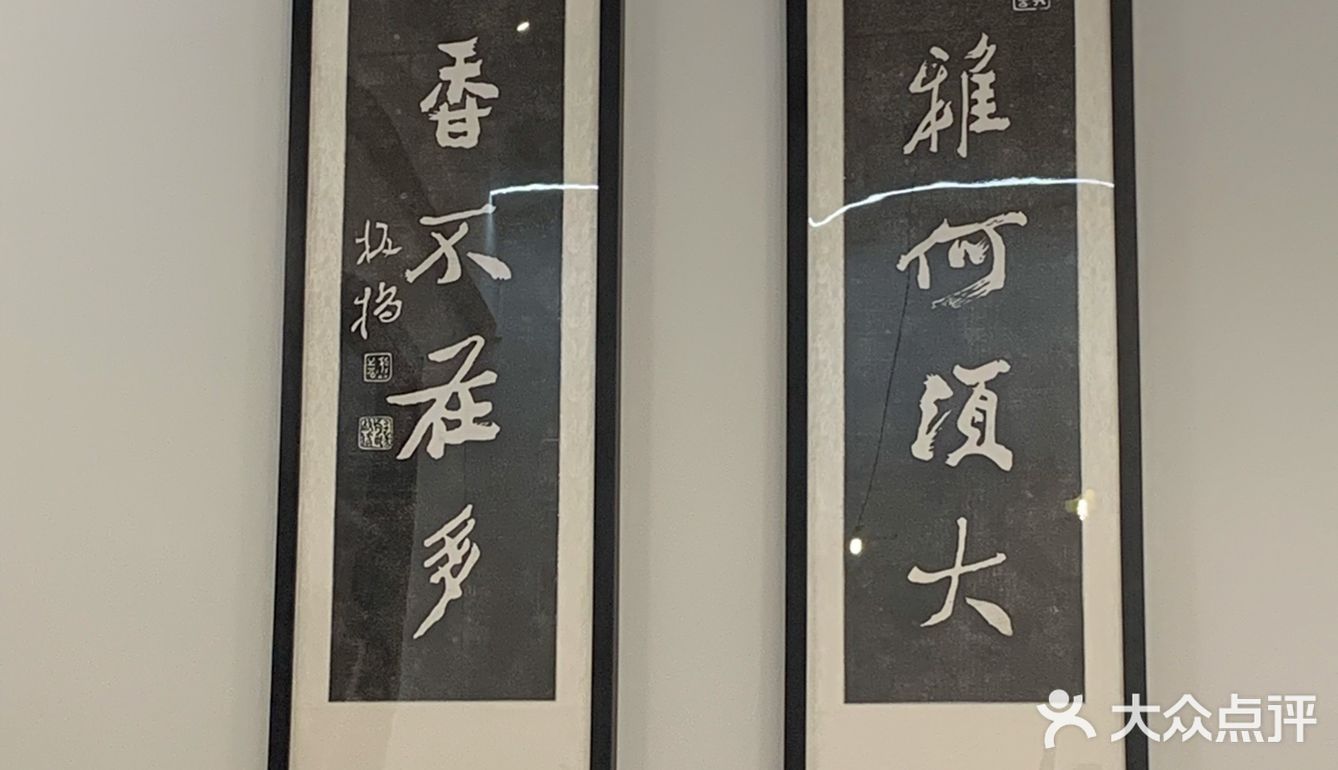 雅何须大
香不在多
板桥
大众点评